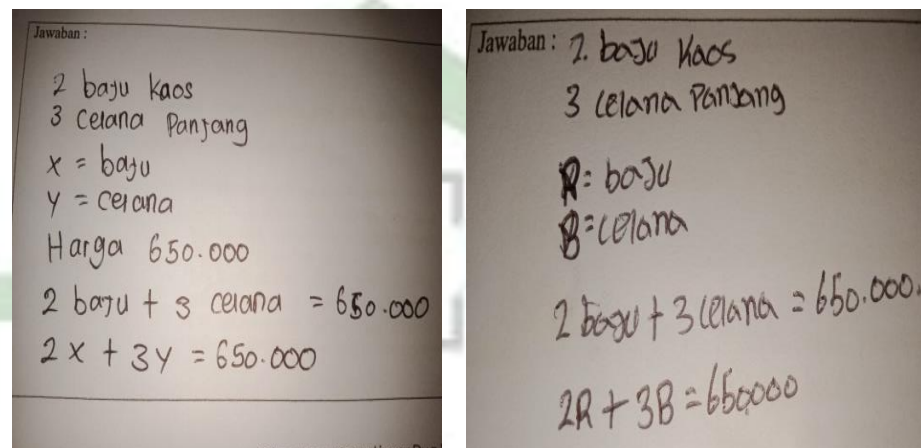 Jawaban :
2 baju kaos
3 celana Panjang
x = baju
y = celana
Harga 650.000
2 baju + 3 celana = 650.000
2x + 3y = 650.000
Jawaban : 2. baju kaos
3 celana Panjang
R = baju
B = celana
2 baju + 3 celana = 650.000.
2R + 3B = 650000